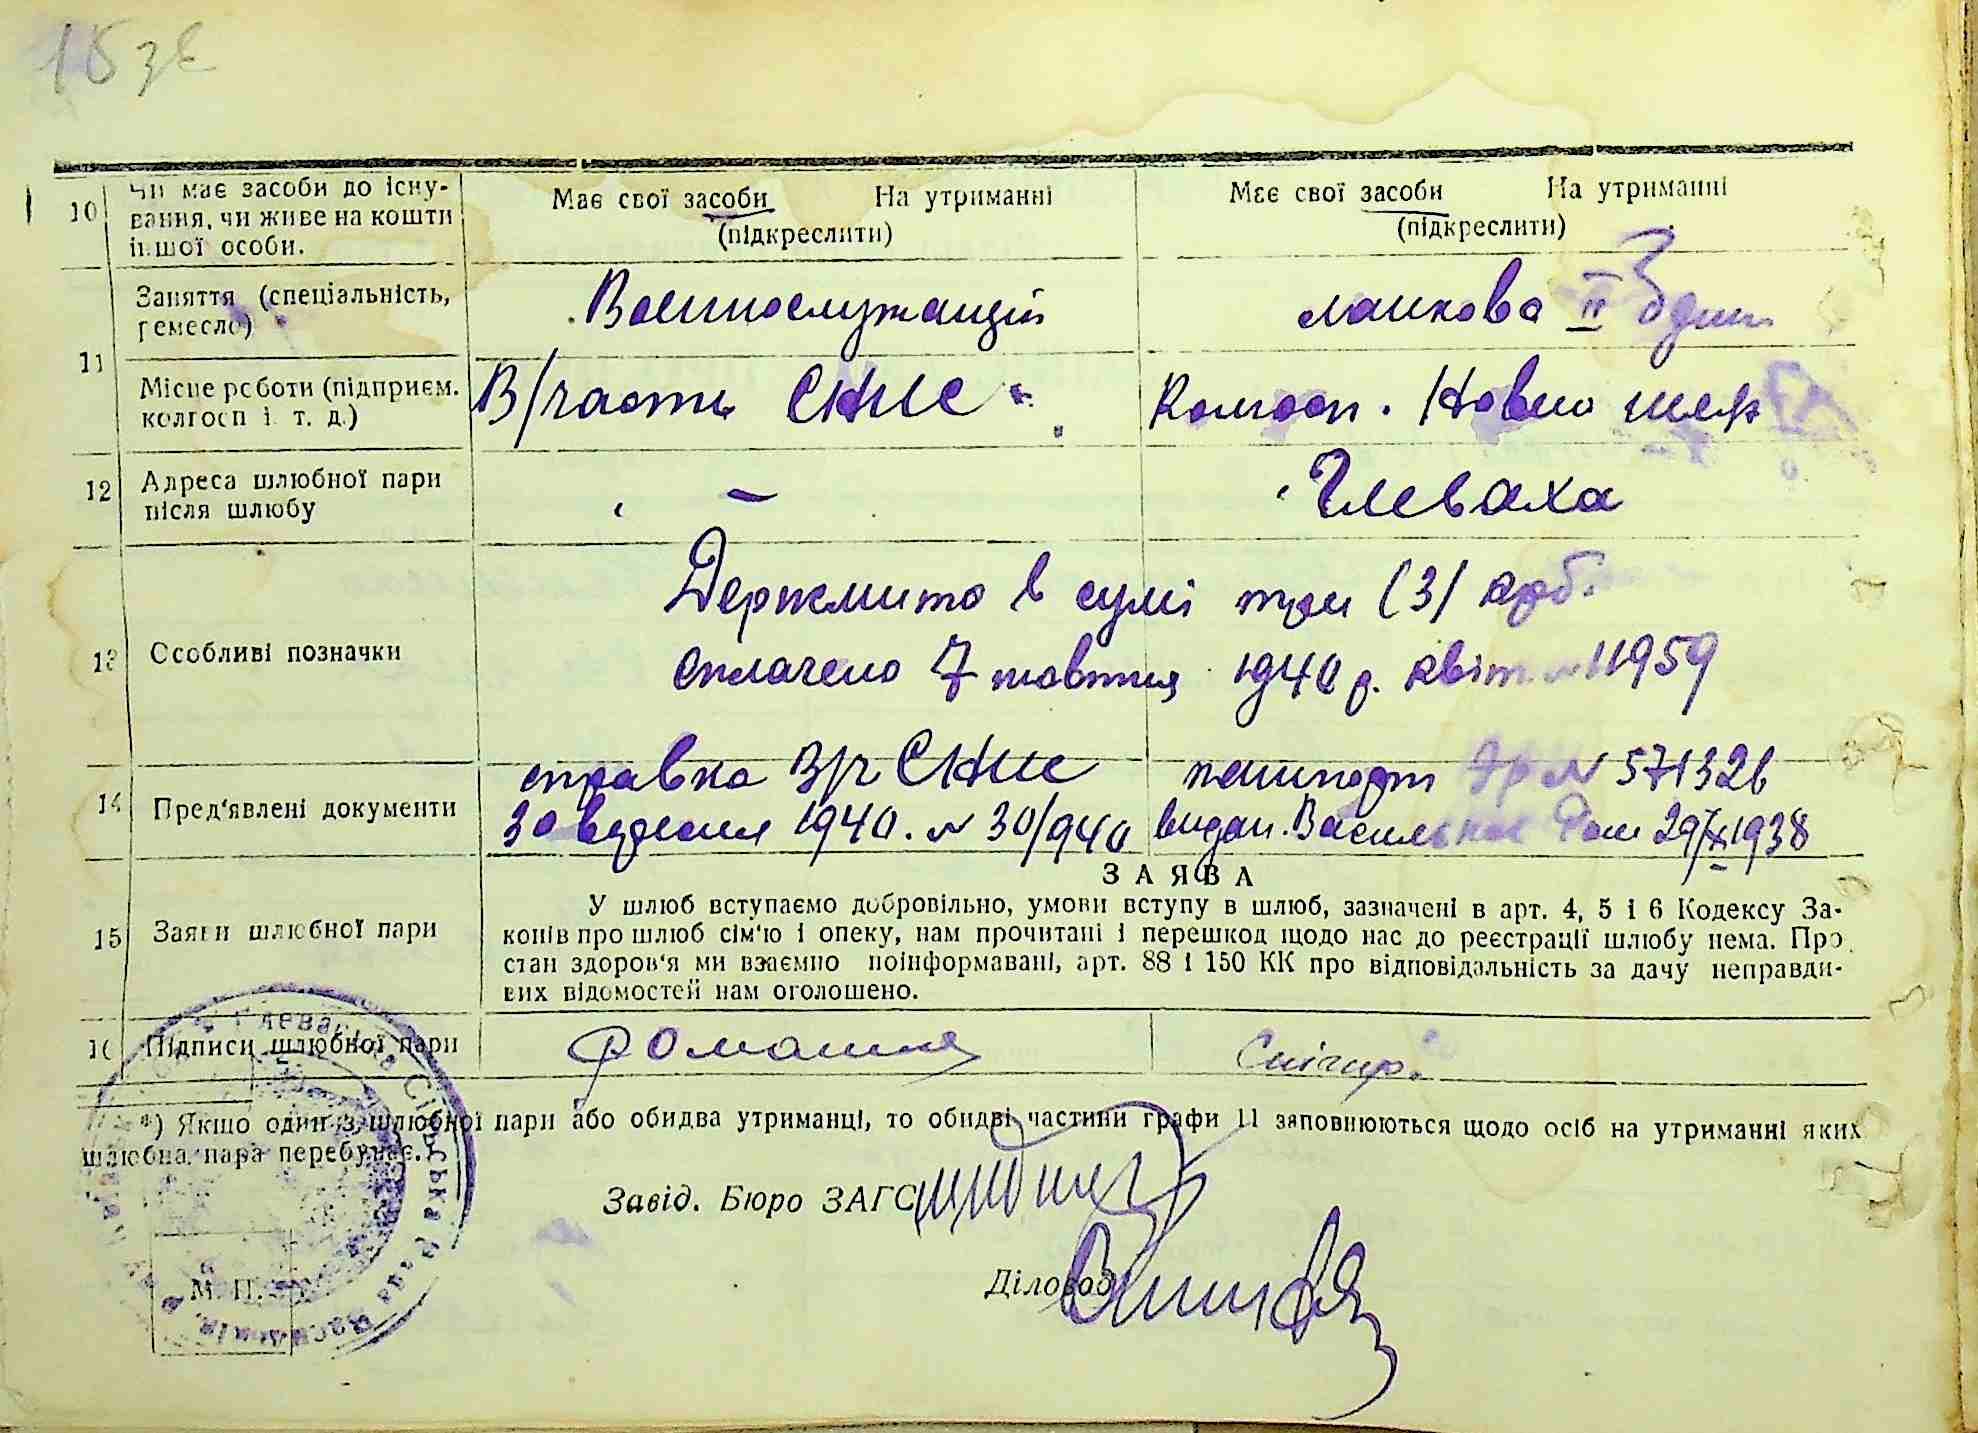 18 зв
10 Чи має засоби до існу-
вання, чи живе на кошти
іншої особи.
Має свої засоби На утриманні
(підкреслити)
Має свої засоби На утриманні
(підкреслити)
11 Заняття (спеціальність,
ремесло)
Военнослужащий
ланкова II
Місце роботи (підприєм.
колгосп і. т. д.)
В/части
Колгосп. Нове
12 Адреса шлюбної пари
після шлюбу
— Глеваха
13 Особливі позначки
Держмито в сумі три (3) крб.
сплачено 7 жовтня 1940 р. квіт. № 11959
14 Пред'явлені документи
справка В/ч
30 вересня 1940. № 30/940
пашпорт № 571326
видан. Васильк 29/XI 1938
ЗАЯВА
15 Заяви шлюбної пари
У шлюб вступаємо добровільно, умови вступу в шлюб, зазначені в арт. 4, 5 і 6 Кодексу За-
конів про шлюб сім'ю і опеку, нам прочитані і перешкод щодо нас до реєстрації шлюбу нема. Про
стан здоров'я ми взаємно поінформавані, арт. 88 і 150 КК про відповідальність за дачу неправди-
вих відомостей нам оголошено.
16 Підписи шлюбної пари
Ромашка
Снігир.
*) Якщо один з шлюбної пари або обидва утриманці, то обидві частини графи 11 заповнюються щодо осіб на утриманні яких
шлюбна пара перебуває.
Завід. Бюро ЗАГС
Діловод
М. П.
Глевахівська Сільська Рада